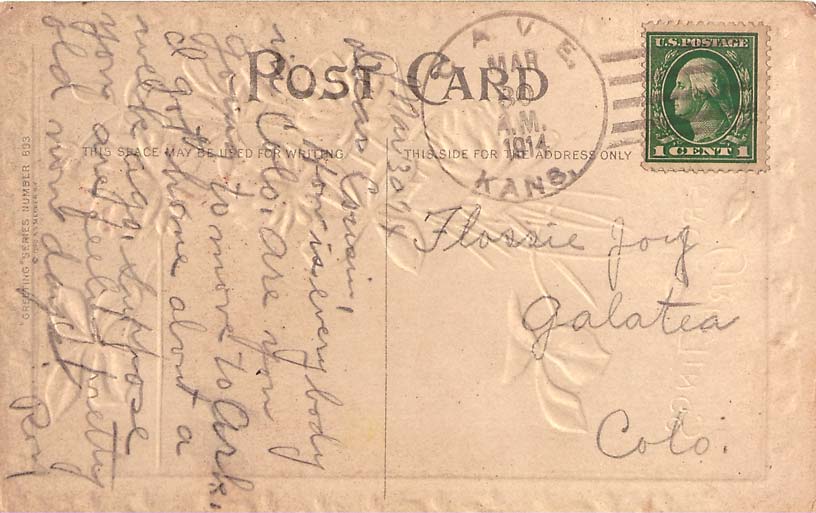 POST CARD
THIS SPACE MAY BE USED FOR WRITING
THIS SIDE FOR THE ADDRESS ONLY
CAVE
MAR
30
A.M.
1914
KANS.
U.S. POSTAGE
1 CENT 1
Flossie Joy
Galatea
Colo.
Mar 30 14
Dear Cousin,
How is everybody
in Colo. are you
going to move to Ark.
I got home about a
week ago. Suppose
you are feeling pretty
old now days.
Roy
"GREETING" SERIES NUMBER 893
GREETINGS